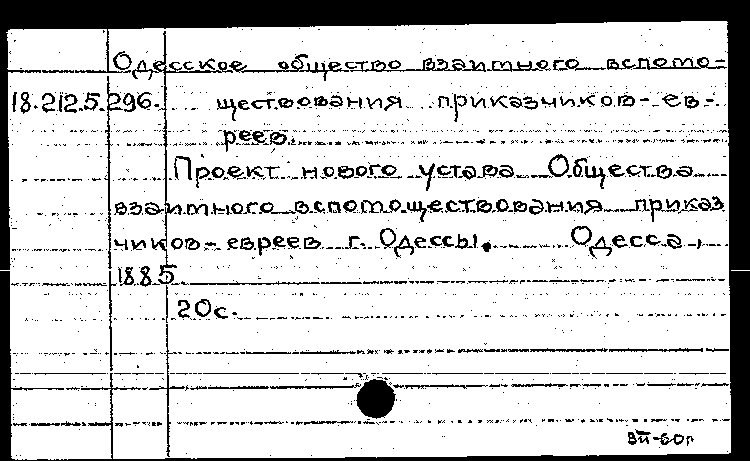 Одесское общество взаимного вспомо-
18.212.5.296. ществования приказчиков-ев-
реев.
Проект нового устава Общества
взаимного вспомоществования приказ
чиков-евреев г. Одессы. Одесса,
1885
20с.